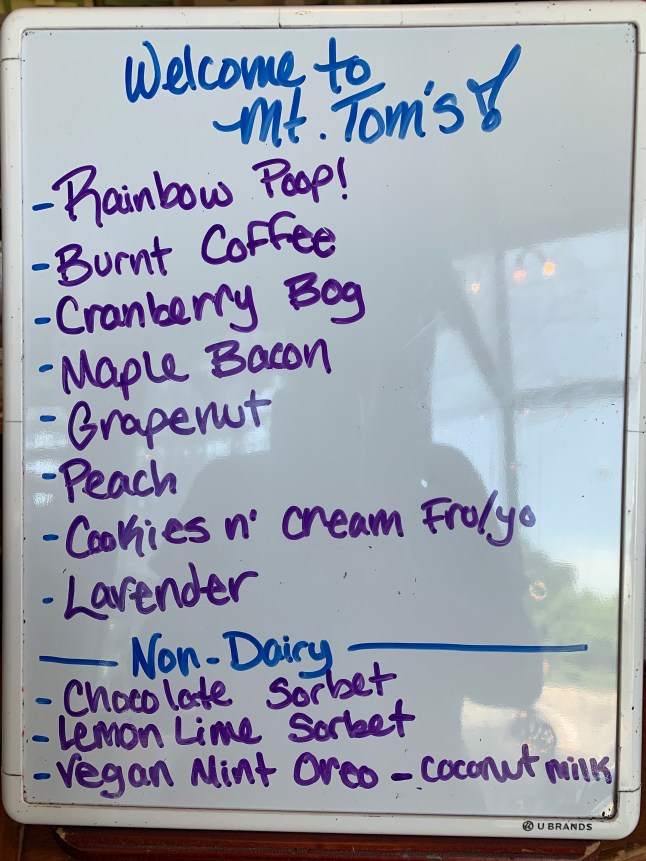 Welcome to
Mt. Tom's!
- Rainbow Poop!
- Burnt Coffee
- Cranberry Bog
- Maple Bacon
- Grapenut
- Peach
- Cookies n' Cream Fro/yo
- Lavender
Non-Dairy
- Chocolate Sorbet
- Lemon Lime Sorbet
- Vegan Mint Oreo - coconut milk
U BRANDS